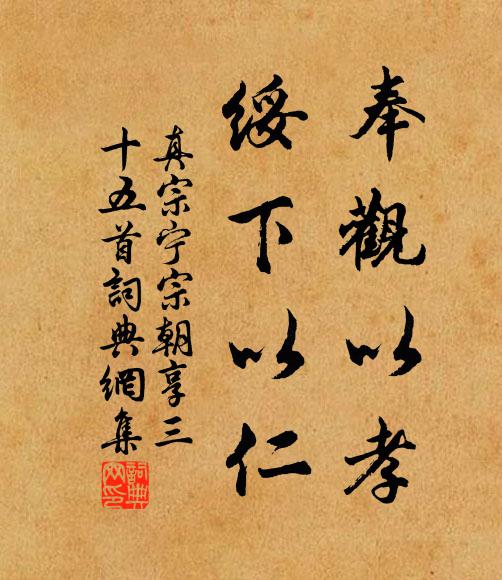 奉觀以孝
綏下以仁
真宗宁宗朝享三
十五首詞典網集
詞典
网印